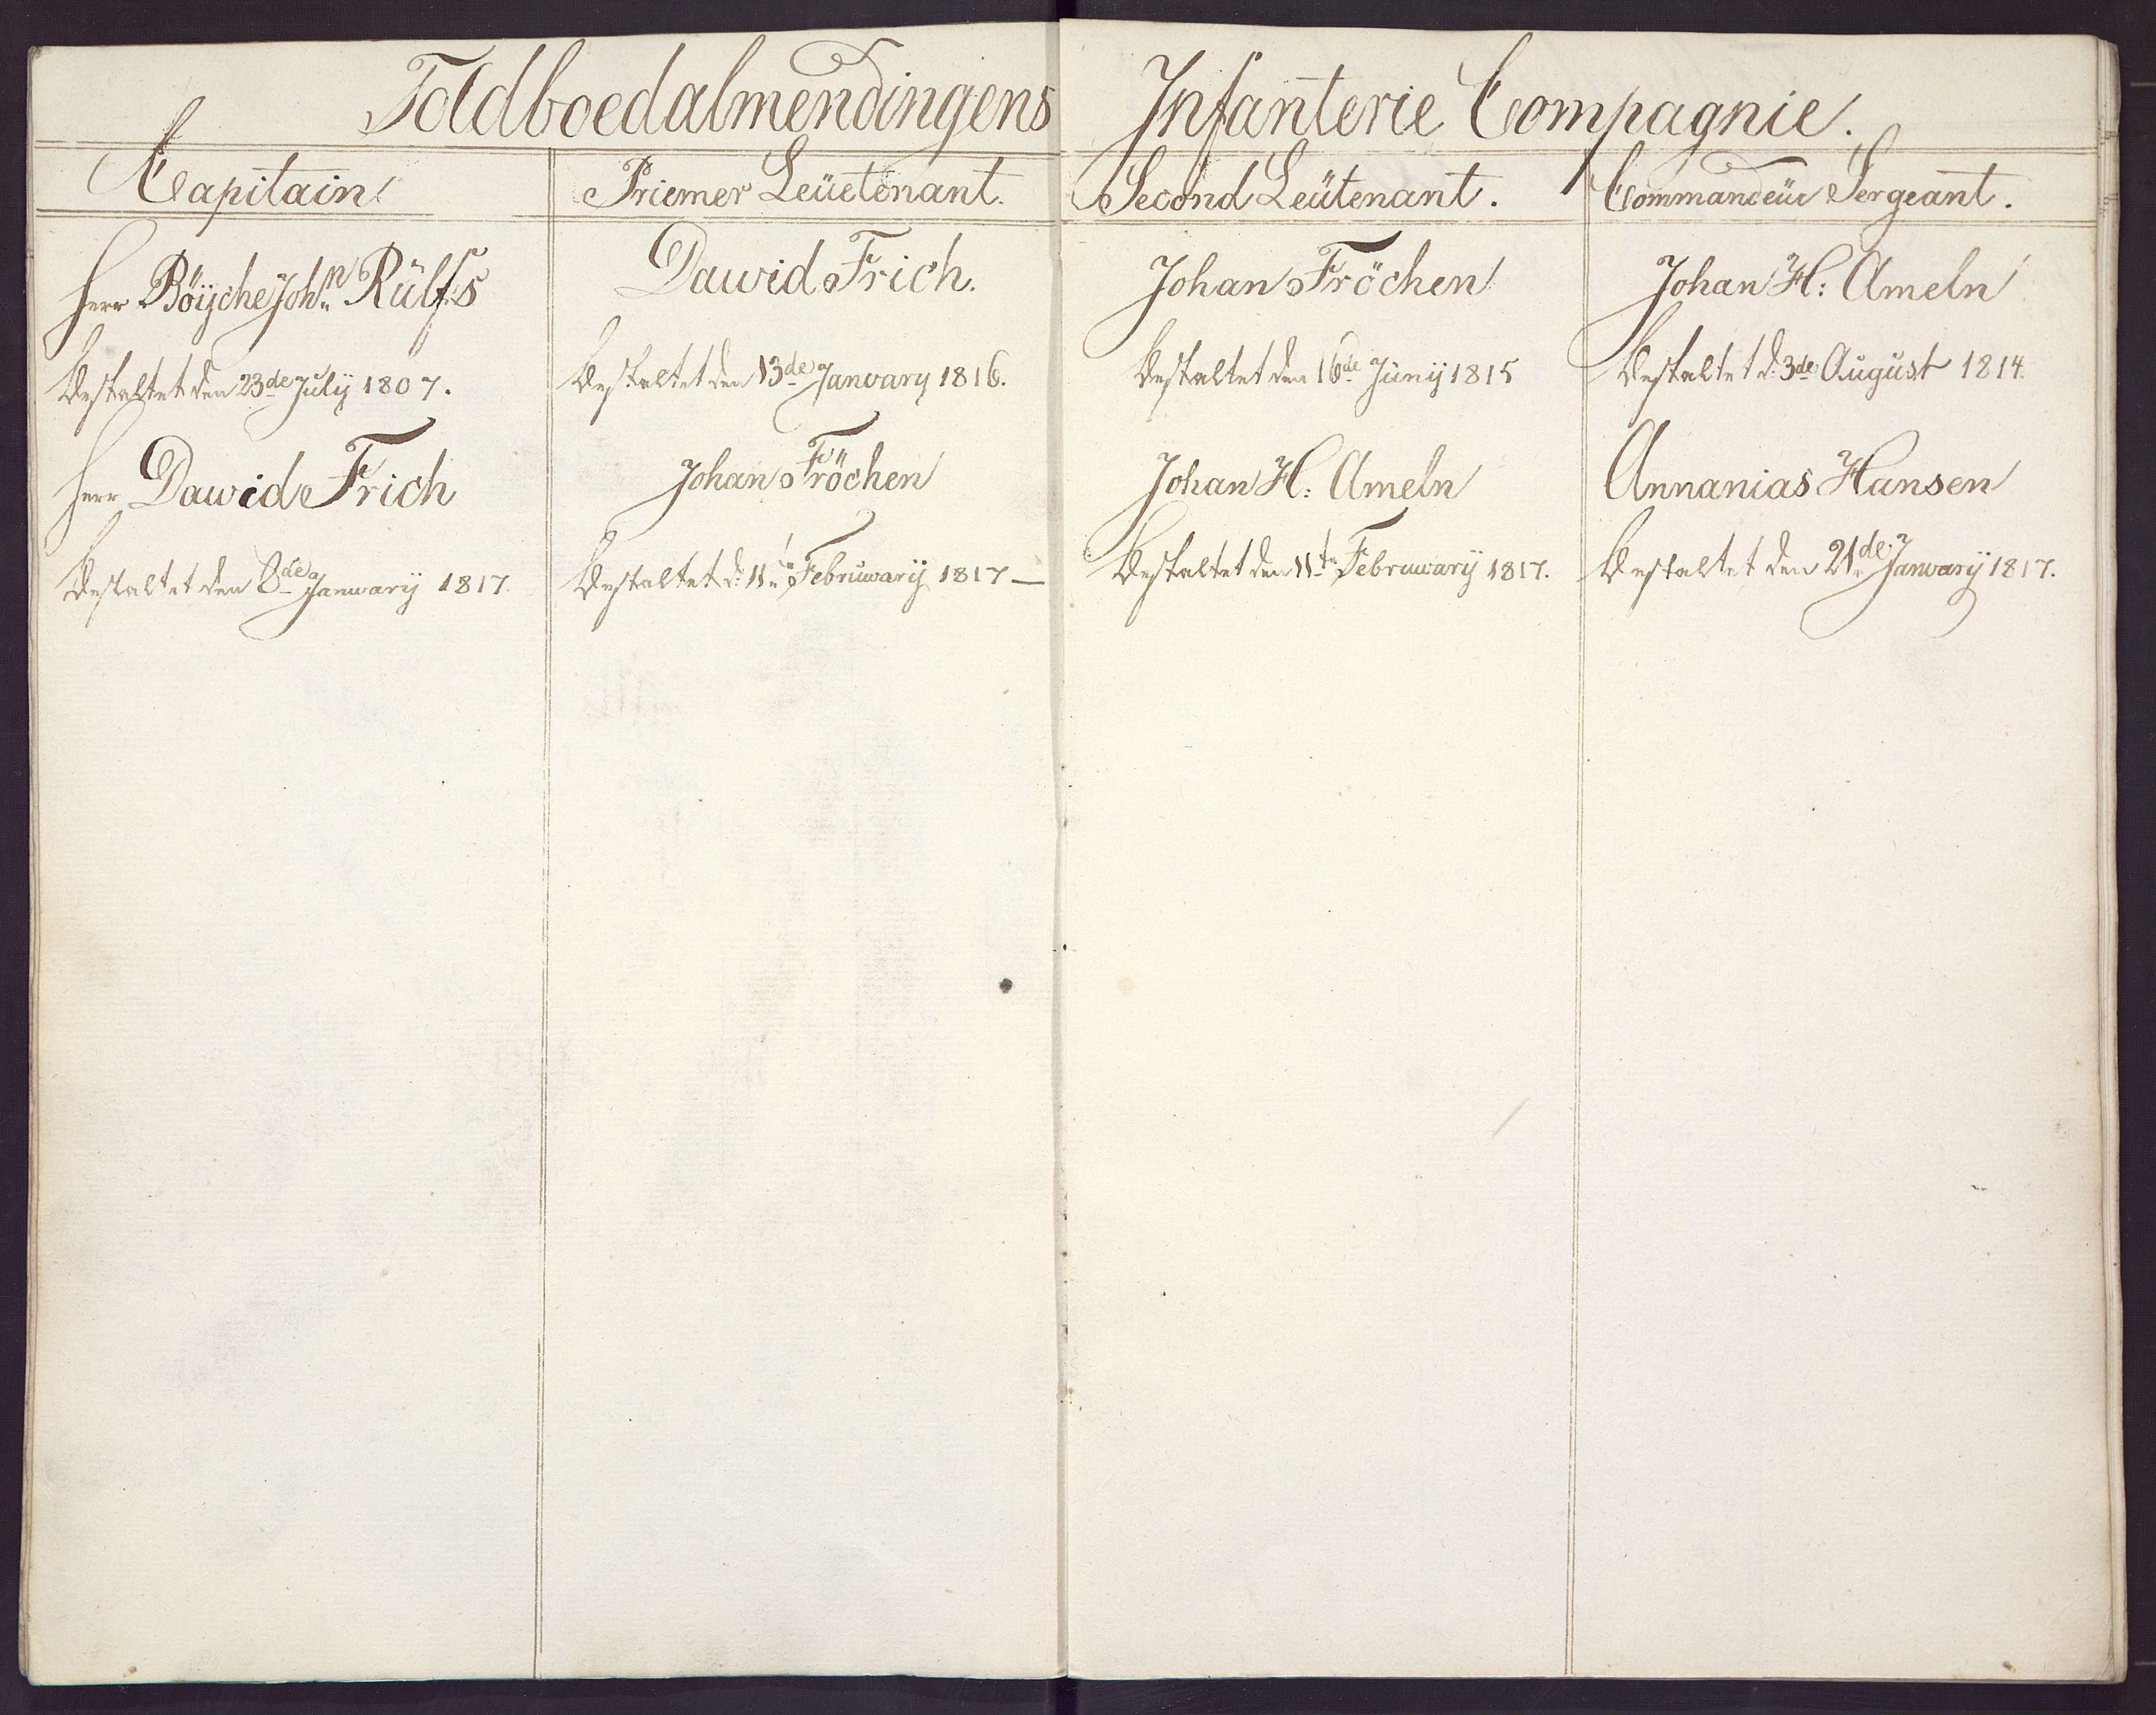 Toldboedalmendingens Infanterie Compagnie.
Capitain
Priemer Leüetenant.
Second Leütenant.
Commandeür Sergeant.
Herr Böÿche Joh:n Rülfs
Dawid Frich.
Johan Fröchen
Johan H: Ameln
Bestaltet den 23de Julÿ 1807.
Bestaltet den 13de January 1816.
Bestaltet den 16de Jünÿ 1815
Bestaltet d: 3de August 1814.
Herr Dawid Frich
Johan Fröchen
Johan H: Ameln
Annanias Hansen
Bestaltet den 8de Januarÿ 1817.
Bestaltet d: 11te Februwarÿ 1817 —
Bestaltet den 11te Februwarÿ 1817.
Bestaltet den 21de Januarÿ 1817.